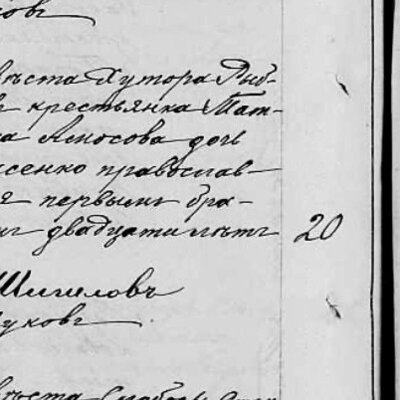 ковъ
вѣста Хутора Рыб-
въ крестьянка Тат-
на Амосова дочь
сенко православ-
я первымъ бра-
мъ двадцати лѣтъ 20
Шигиловъ
уковъ
вѣста Слободы